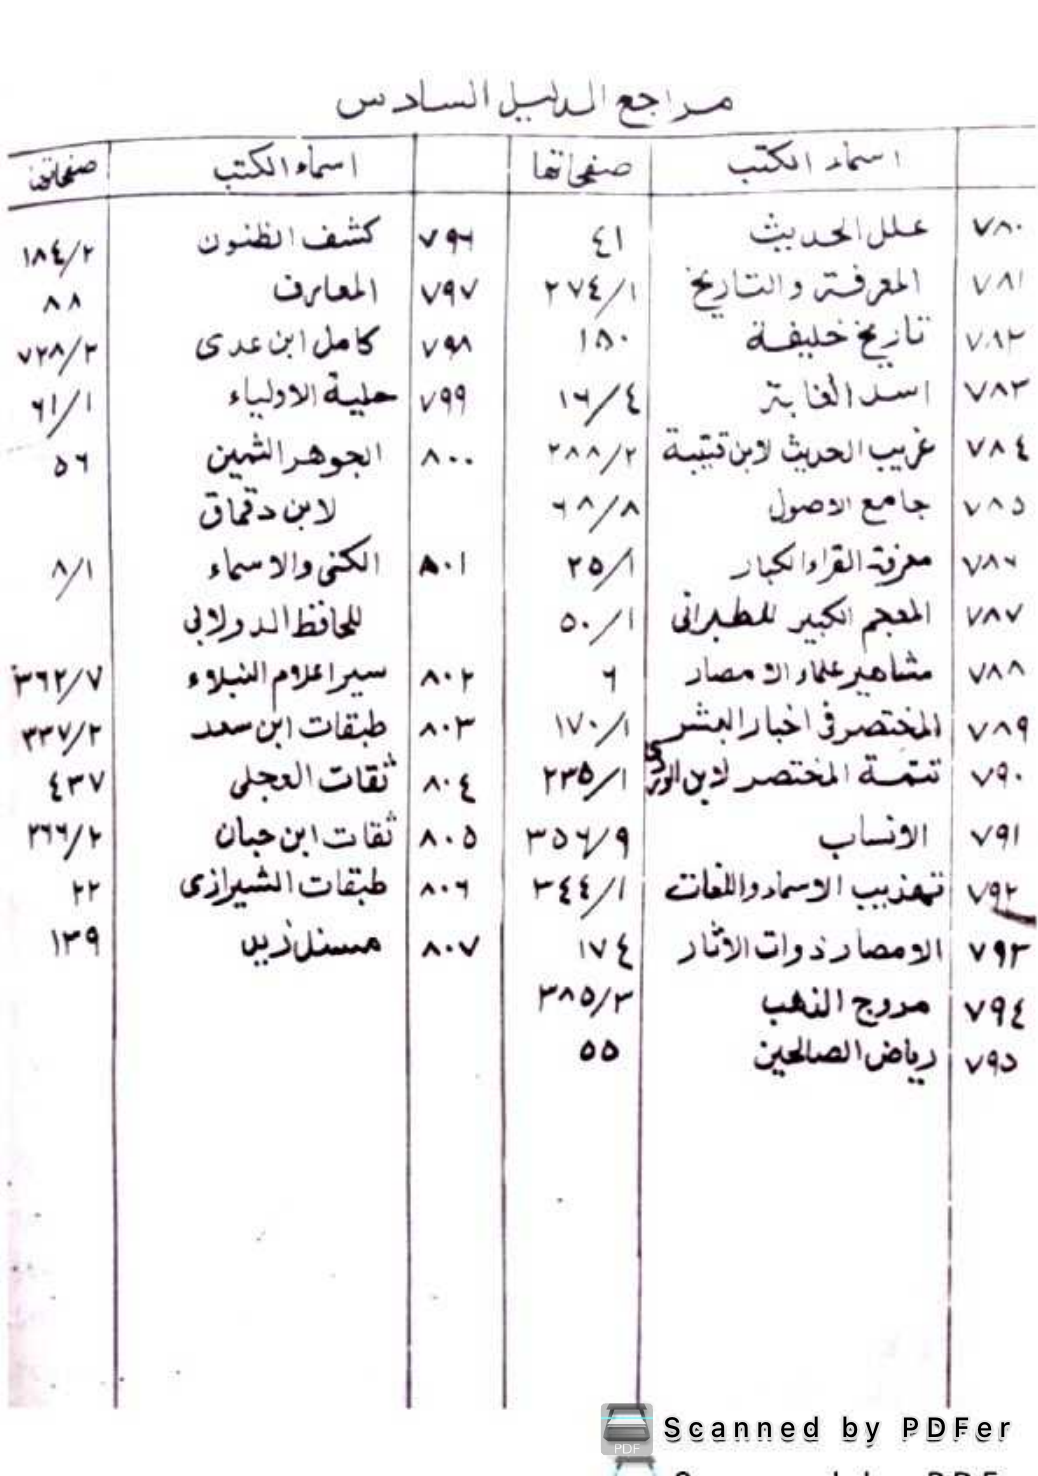 مراجع الدليل السادس
اسماء الكتب صفحاتها
٧٨٠ علل الحديث ٤١
٧٨١ المعرفة والتاريخ ٢٧٤/١
٧٨٢ تاريخ خليفة ١٥٠
٧٨٣ اسد الغابة ١٦/٤
٧٨٤ غريب الحديث لابن قتيبة ٢٨٨/٢
٧٨٥ جامع الاصول ٦٨/٨
٧٨٦ معرفة القراء الكبار ٢٥/١
٧٨٧ المعجم الكبير للطبرانى ٥٠/١
٧٨٨ مشاهير علماء الامصار ٦
٧٨٩ المختصر فى اخبار البشر ١٧٠/١
٧٩٠ تتمة المختصر لابن الوردى ٢٣٥/١
٧٩١ الانساب ٣٥٦/٩
٧٩٢ تهذيب الاسماء واللغات ٣٤٤/١
٧٩٣ الامصار ذوات الاثار ١٧٤
٧٩٤ مروج الذهب ٣٨٥/٣
٧٩٥ رياض الصالحين ٥٥
اسماء الكتب صفحاتها
٧٩٦ كشف الظنون ١٨٤/٢
٧٩٧ المعارف ٨٨
٧٩٨ كامل ابن عدى ٧٢٨/٢
٧٩٩ حلية الاولياء ٦١/١
٨٠٠ الجوهر الثمين ٥٦
لابن دقماق
٨٠١ الكنى والاسماء ٨/١
للحافظ الدولابي
٨٠٢ سير اعلام النبلاء ٣٦٢/٧
٨٠٣ طبقات ابن سعد ٣٣٧/٢
٨٠٤ ثقات العجلى ٤٣٧
٨٠٥ ثقات ابن حبان ٢٦٦/٢
٨٠٦ طبقات الشيرازى ٢٢
٨٠٧ مسند زيد ١٣٩
PDF
Scanned by PDFer